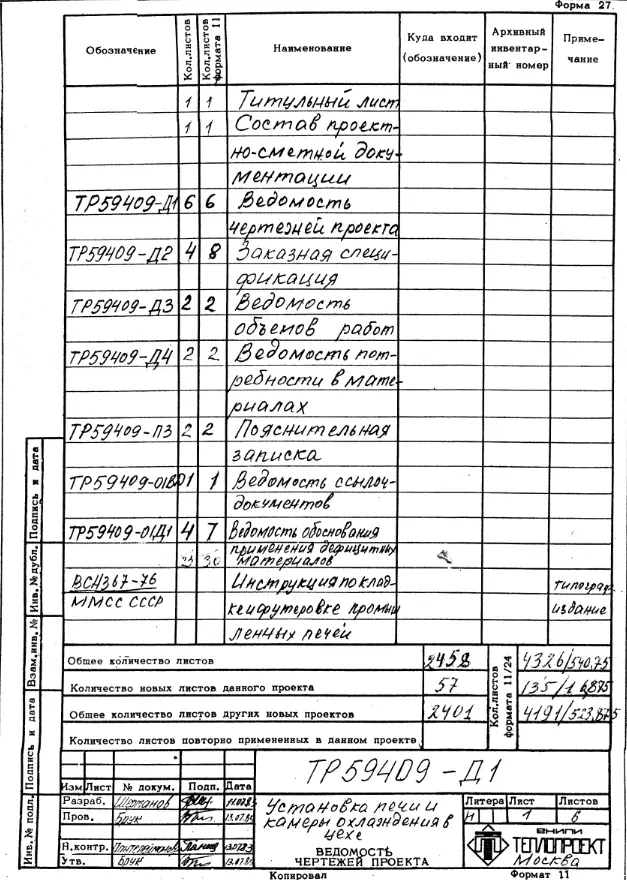 Форма 27.
Обозначение Кол.листов Кол.листов формата 11 Наименование Куда входит (обозначение) Архивный инвентар-ный номер Приме-чание
1 1 Титульный лист
1 1 Состав проект-
но-сметной доку-
ментации
ТР59409-Д1 6 6 Ведомость
чертежей проекта
ТР59409-Д2 4 8 Заказная специ-
фикация
ТР59409-Д3 2 2 Ведомость
объемов работ
ТР59409-Д4 2 2 Ведомость пот-
ребности в мате-
риалах
ТР59409-ПЗ 2 2 Пояснительная
записка
ТР59409-01ВД 1 1 Ведомость ссылоч-
документов
ТР59409-01Д1 4 7 Ведомость обоснования
применения дефицитных
23 30 материалов
ВСН367-76 Инструкция по клад- типограф.
ММСС СССР ке и футеровке промыш издание
ленных печей
Общее количество листов 2458 4326/540,75
Количество новых листов данного проекта 57 135/16,875
Общее количество листов других новых проектов 2401 4191/523,875
Количество листов повторно примененных в данном проекте
Кол.листов формата 11/24
ТР59409-Д1
Изм Лист № докум. Подп. Дата
Разраб.
Пров. Брук
Н.контр.
Утв. Брук
Установка печи и
камеры охлаждения в
цехе
ВЕДОМОСТЬ
ЧЕРТЕЖЕЙ ПРОЕКТА
Литера Лист Листов
И 1 6
ВНИПИ
ТЕПЛОПРОЕКТ
Москва
Копировал Формат 11
Подпись и дата
Инв.№ дубл.
Взам.инв.№
Подпись и дата
Инв.№ подл.